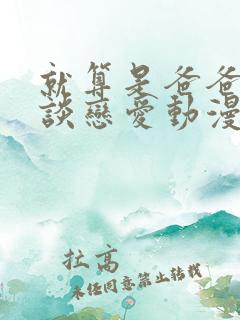 就算是爸爸
談戀愛動漫
拉高
未经同意禁止转载